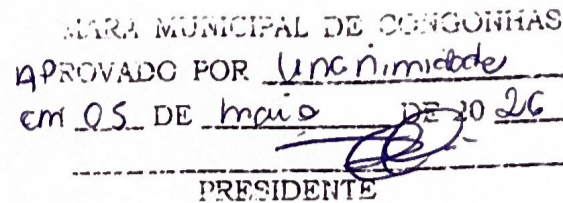 MARA MUNICIPAL DE CONGONHAS
APROVADO POR Unanimidade
em 05 DE maio DE 20 26
PRESIDENTE